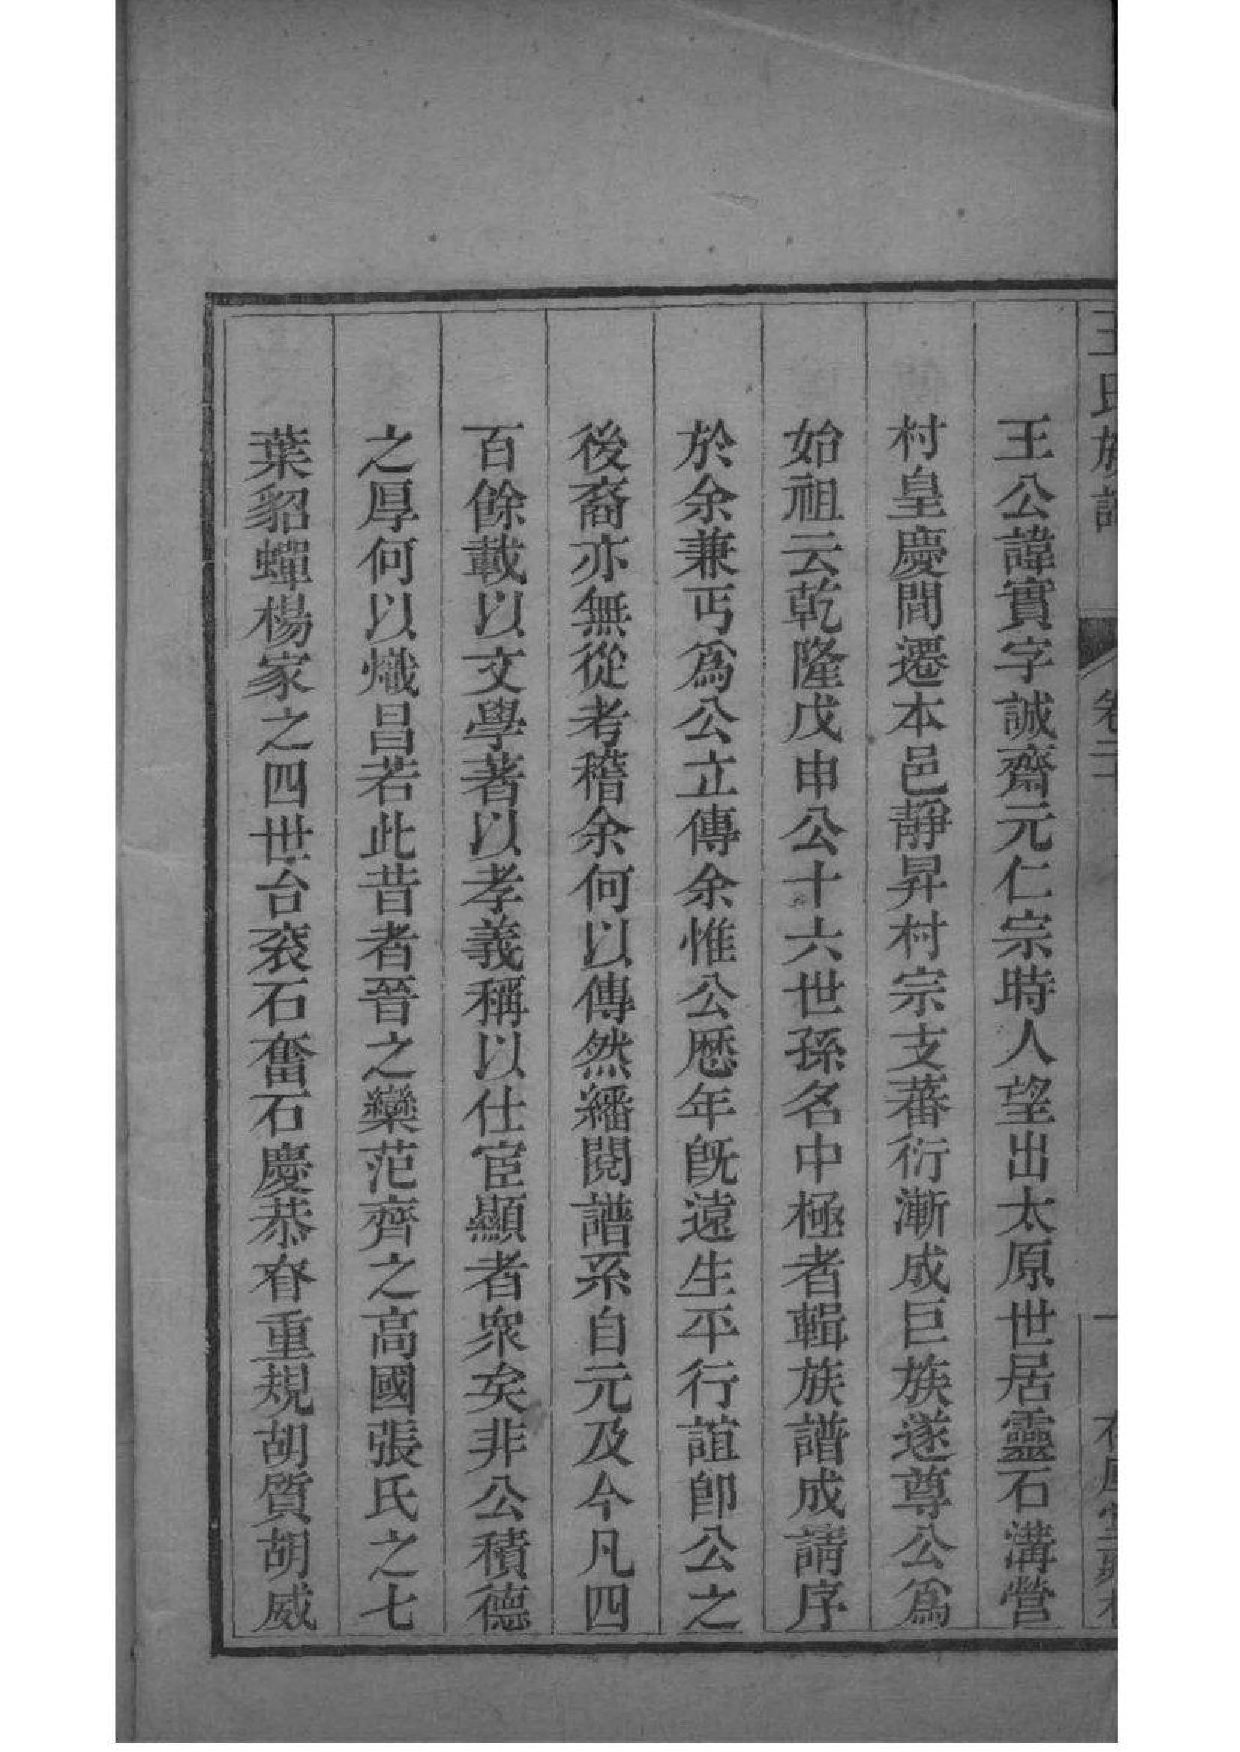 王氏族譜 卷二十 一
王公諱實字誠齋元仁宗時人望出太原世居靈石溝營
村皇慶間遷本邑靜昇村宗支蕃衍漸成巨族遂尊公爲
始祖云乾隆戊申公十六世孫名中極者輯族譜成請序
於余兼丐爲公立傳余惟公歷年旣遠生平行誼卽公之
後裔亦無從考稽余何以傳然繙閱譜系自元及今凡四
百餘載以文學著以孝義稱以仕宦顯者衆矣非公積德
之厚何以熾昌若此昔者晉之欒范齊之高國張氏之七
葉貂蟬楊家之四世台袞石奮石慶恭眘重規胡質胡威